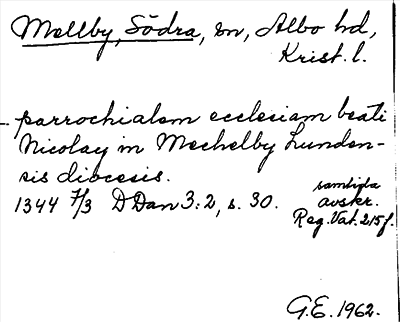 Mellby, Södra, sn, Albo hd,
Krist. l.
parrochialem ecclesiam beati
Nicolay in Mechelby Lunden-
sis diocesis.
1344 7/3 DDan 3:2, s. 30.
samtida
avskr.
Reg. Vat. 215 f.
G.E. 1962.